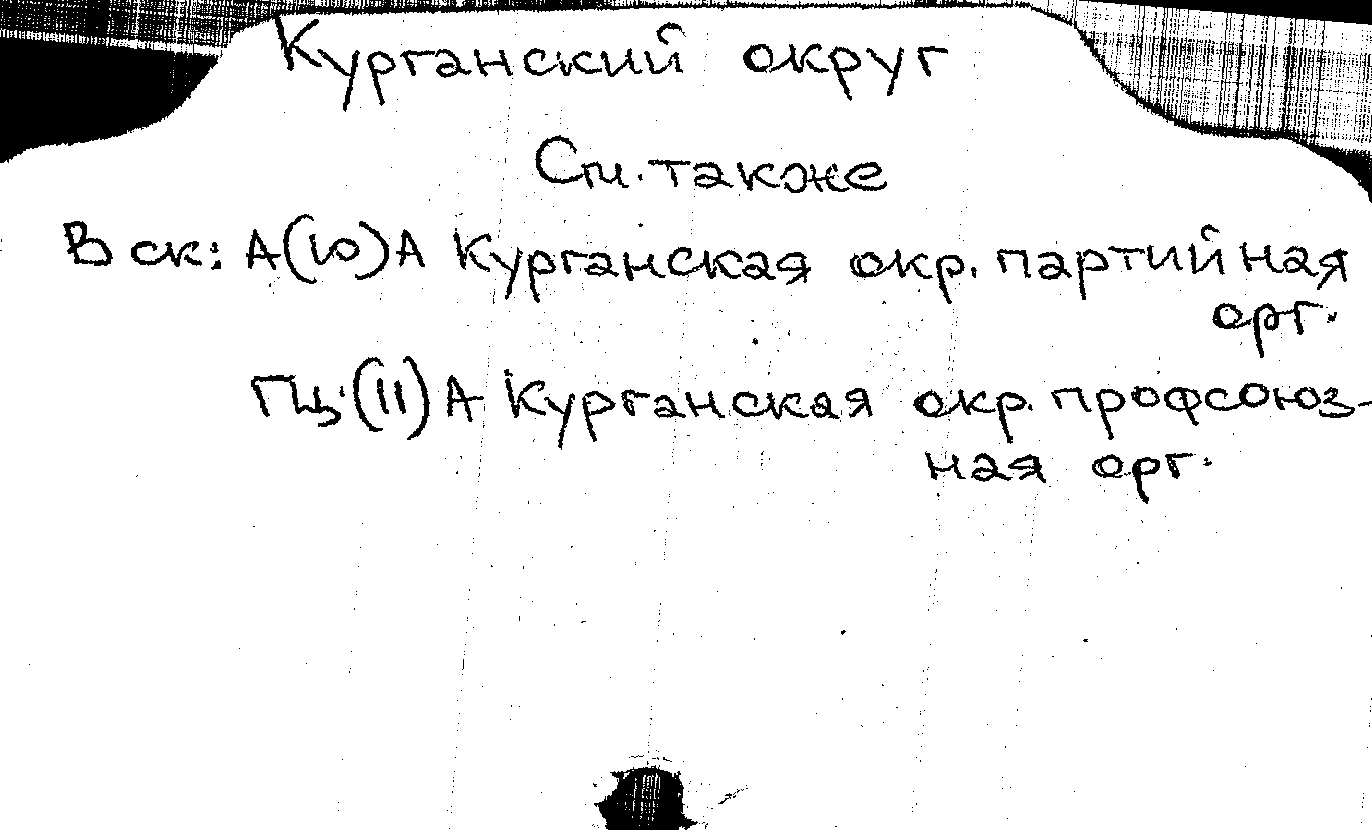 Курганский округ
См. также
В ск: А(10)А Курганская окр. партийная
орг.
Пц.(11)А Курганская окр. профсоюз-
ная орг.